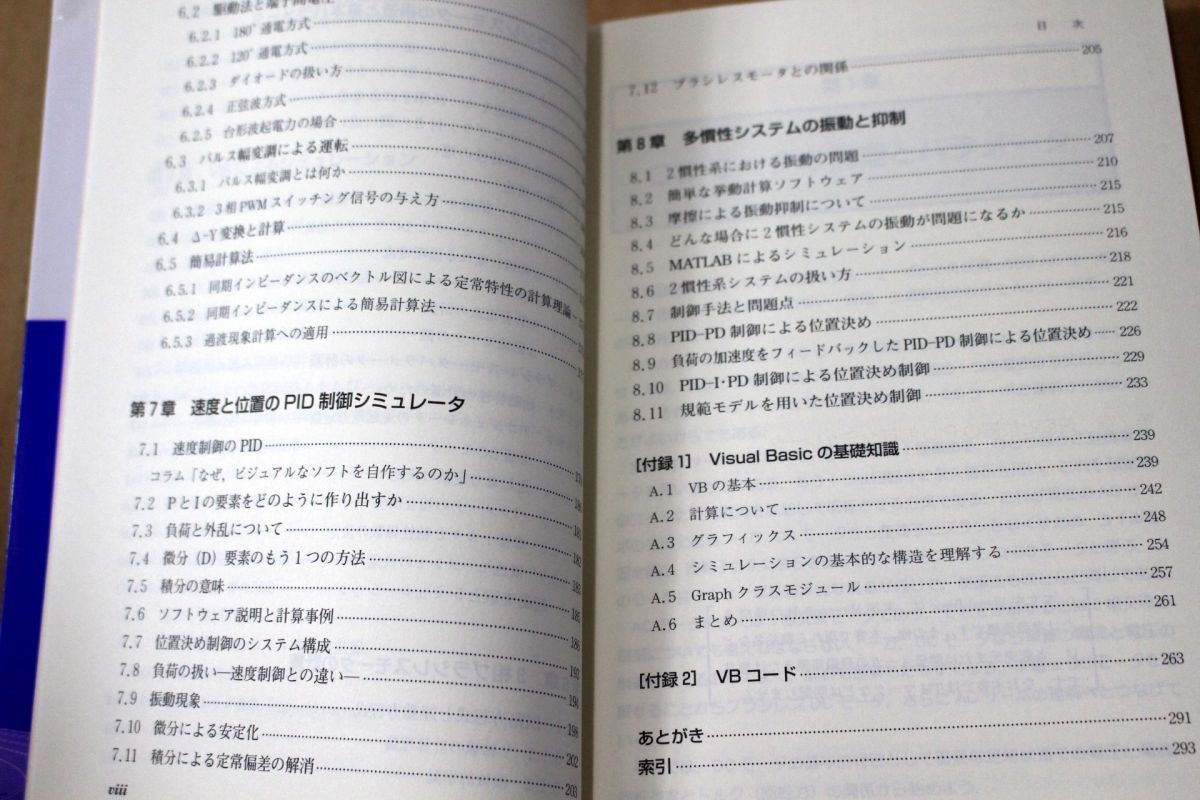 6.2 駆動法と端子間電圧
6.2.1 180°通電方式
6.2.2 120°通電方式
6.2.3 ダイオードの扱い方
6.2.4 正弦波方式
6.2.5 台形波起電力の場合
6.3 パルス幅変調による運転
6.3.1 パルス幅変調とは何か
6.3.2 3相PWMスイッチング信号の与え方
6.4 Δ-Y変換と計算
6.5 簡易計算法
6.5.1 同期インピーダンスのベクトル図による定常特性の計算理論
6.5.2 同期インピーダンスによる簡易計算法
6.5.3 過渡現象計算への適用
第7章 速度と位置のPID制御シミュレータ
7.1 速度制御のPID
コラム「なぜ,ビジュアルなソフトを自作するのか」
7.2 PとIの要素をどのように作り出すか
7.3 負荷と外乱について 181
7.4 微分(D)要素のもう1つの方法 182
7.5 積分の意味 183
7.6 ソフトウェア説明と計算事例 185
7.7 位置決め制御のシステム構成 186
7.8 負荷の扱い—速度制御との違い— 193
7.9 振動現象 194
7.10 微分による安定化 198
7.11 積分による定常偏差の解消 202
203
viii
目 次
7.12 ブラシレスモータとの関係 205
第8章 多慣性システムの振動と抑制
8.1 2慣性系における振動の問題 207
8.2 簡単な挙動計算ソフトウェア 210
8.3 摩擦による振動抑制について 215
8.4 どんな場合に2慣性システムの振動が問題になるか 215
8.5 MATLABによるシミュレーション 216
8.6 2慣性系システムの扱い方 218
8.7 制御手法と問題点 221
8.8 PID-PD制御による位置決め 222
8.9 負荷の加速度をフィードバックしたPID-PD制御による位置決め 226
8.10 PID-I・PD制御による位置決め制御 229
8.11 規範モデルを用いた位置決め制御 233
[付録1] Visual Basicの基礎知識 239
A.1 VBの基本 239
A.2 計算について 242
A.3 グラフィックス 248
A.4 シミュレーションの基本的な構造を理解する 254
A.5 Graphクラスモジュール 257
A.6 まとめ 261
[付録2] VBコード 263
あとがき 291
索引 293